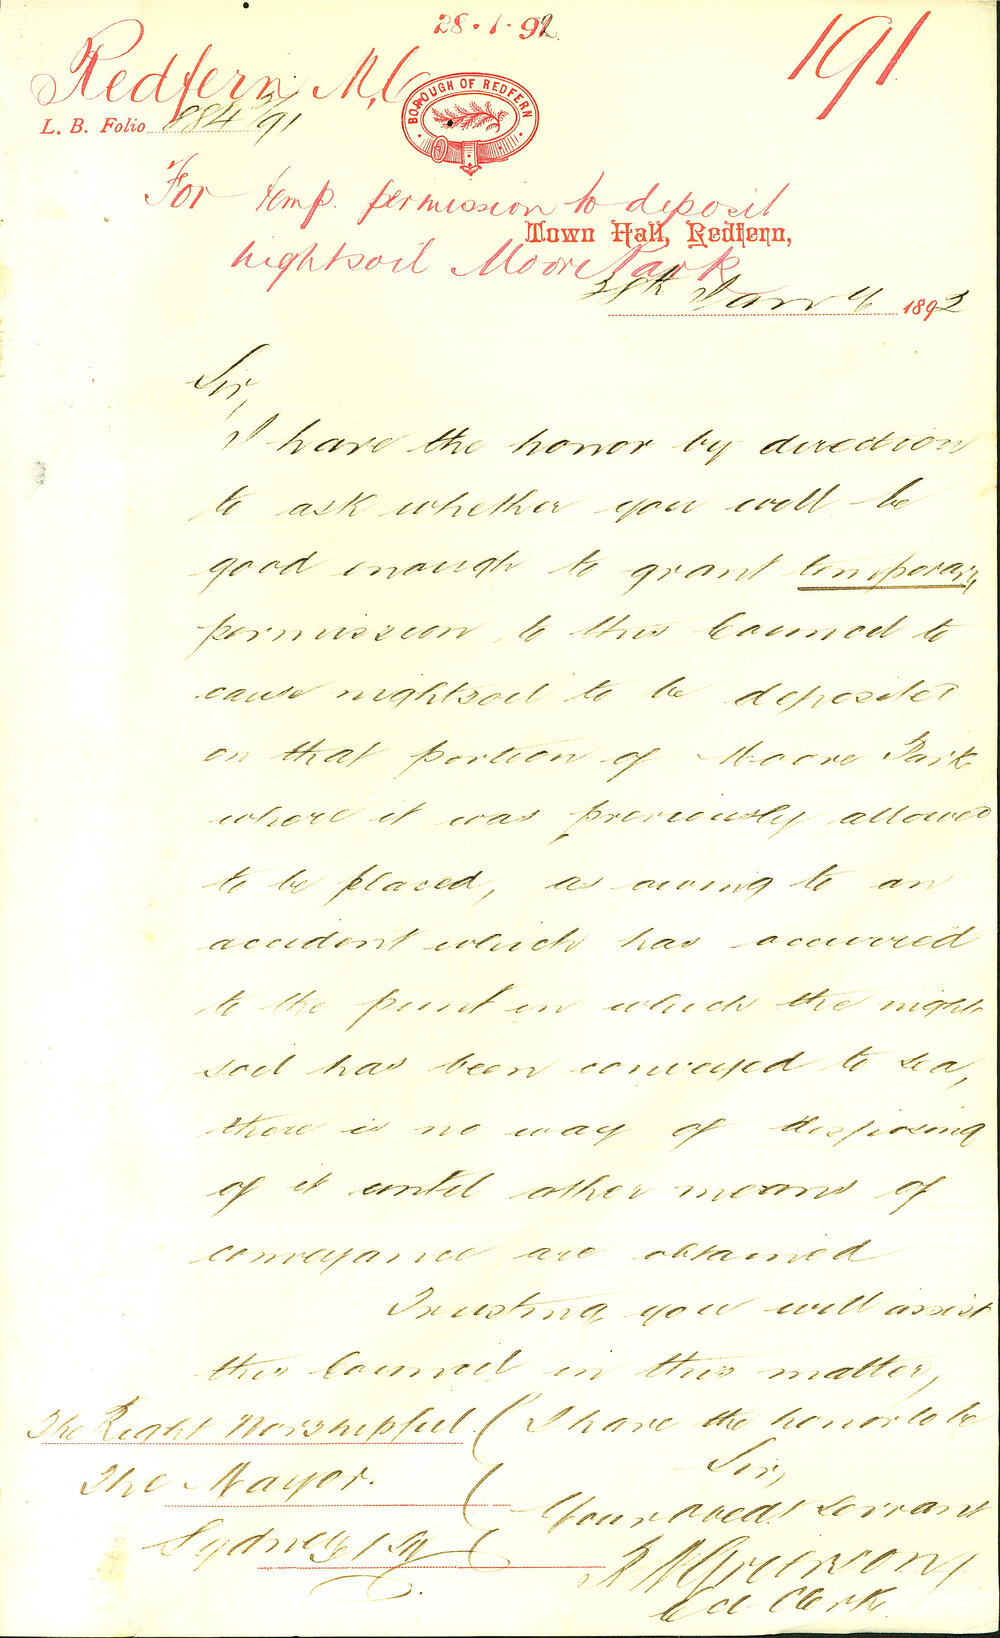 28.1.92
191
Redfern M,C
BOROUGH OF REDFERN
L. B. Folio 884/91
For temp. permission to deposit
Town Hall, Redfern,
nightsoil Moore Park
28th Jany 1892
Sir,
I have the honor by direction
to ask whether you will be
good enough to grant temporary
permission to this Council to
cause nightsoil to be deposited
on that portion of Moore Park
where it was previously allowed
to be placed, as owing to an
accident which has occurred
to the punt in which the night
soil has been conveyed to sea,
there is no way of disposing
of it until other means of
conveyance are obtained
Trusting you will assist
this Council in this matter,
The Right Worshipful ( I have the honor to be
The Mayor. ( Sir,
Your obedt servant
Sydney
Clerk